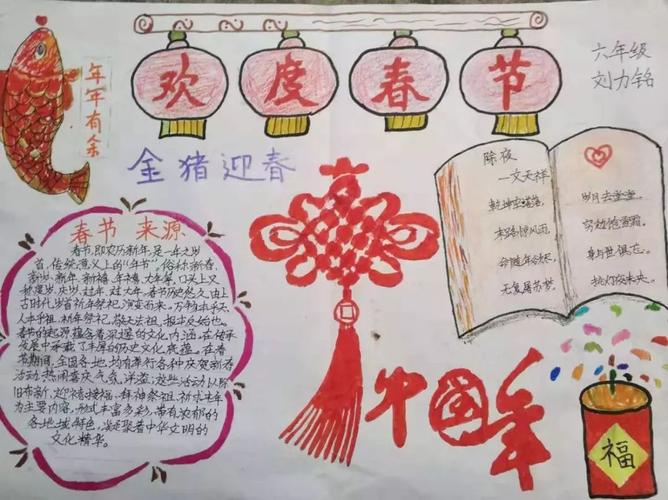 欢度春节
六年级
刘力铭
年年有余
金猪迎春
春节 来源
春节,即农历新年,是一年之岁
首、传统意义上的"年节"。俗称新春、
新岁、新年、新禧、年禧、大年等,口头上又
称度岁、庆岁、过年、过大年。春节历史悠久,由上
古时代岁首祈年祭祀演变而来。万物本乎天、
人本乎祖,祈年祭祀、敬天法祖,报本反始也。
春节的起源蕴含着深邃的文化内涵,在传承
发展中承载了丰厚的历史文化底蕴。在春
节期间,全国各地均有举行各种庆贺新春
活动,热闹喜庆气氛洋溢;这些活动以除
旧布新、迎禧接福、拜神祭祖、祈求丰年
为主要内容,形式丰富多彩,带有浓郁的
各地域特色,凝聚着中华文明的
文化精华。
除夜
—文天祥
乾坤空落落,
末路惊风雨,
命随年欲尽,
无复屠苏梦,
岁月去堂堂。
穷边饱雪霜。
身与世俱忘。
挑灯夜未央。
中国年
福